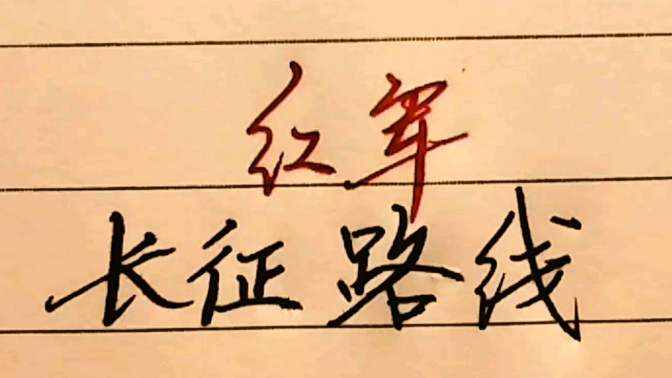 红军
长征路线